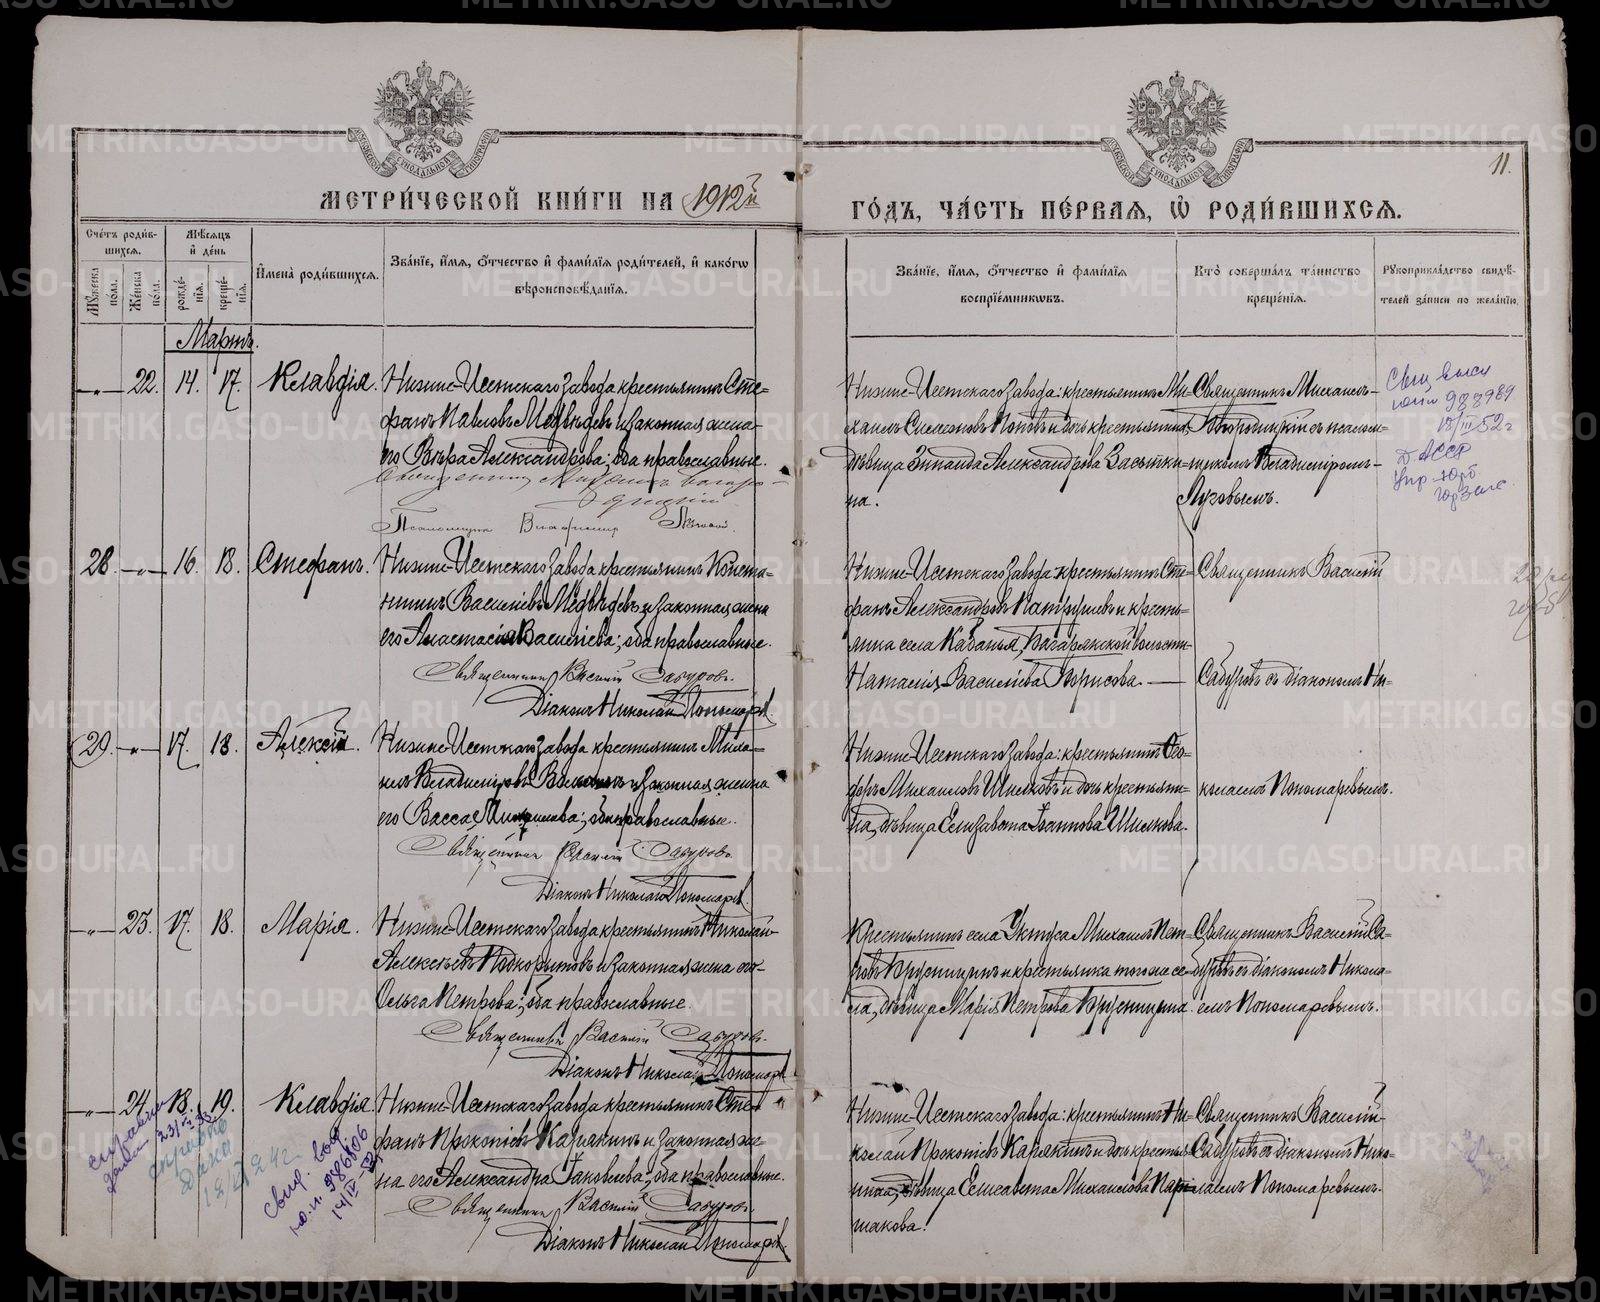 МЕТРИ́ЧЕСКОЙ КНИ́ГИ НА 1912й
ГО́ДЪ, ЧА́СТЬ ПЕ́РВАЯ, Ѡ҆ РОДИ́ВШИХСЯ.
11.
Сче́тъ роди́в-
шихся.
Мꙋ́жеска по́ла.
Же́нска по́ла.
Мѣ́сяцъ и҆ де́нь
рожде́-
нїя.
креще́-
нїя.
И҆мена̀ роди́вшихся.
Зва́нїе, и҆́мя, ѻ҆́тчество и҆ фамилїя роди́телей, и҆ како́гѡ
вѣроисповѣ́данїя.
Зва́нїе, и҆́мя, ѻ҆́тчество и҆ фамилїя
воспрїе́мникѡвъ.
Кто̀ соверша́лъ та́инство
креще́нїя.
Рꙋкоприкла́дство свидѣ́-
телей за́писи по жела́нїю.
Мартъ.
-„- 22. 14. 17. Клавдія.
Нижне-Исетскаго завода крестьянинъ Сте=
фанъ Павловъ Медвѣдевъ и законная жена
его Вѣра Александрова; оба православные.
Священникъ Михаилъ Богоро-
дицкій
Псаломщикъ Владимиръ Луговой.
Нижне-Исетскаго завода: крестьянинъ Ми-
хаилъ Симеоновъ Поповъ и дочь крестьянина,
дѣвица Зинаида Александрова Засыпки-
на.
Священникъ Михаилъ-
Богородицкій съ псалом-
щикомъ Владиміромъ-
Луговымъ.
Свид. выслано
юпи 988989
18/III 52г
ДАССР
Упр.
горЗагс.
28. -„- 16. 18. Стефанъ.
Нижне-Исетскаго завода крестьянинъ Конста=
нтинъ Васильевъ Медвѣдевъ и законная жена
его Анастасія Васильева; оба православные.
Священникъ Василій Сабуровъ.
Діаконъ Николай Пономарев.
Нижне-Исетскаго завода: крестьянинъ Сте=
фанъ Александровъ Патрушевъ и кресть-
янка села Кабанья, Багарякской волости
Наталія Васильева Борисова.
Священникъ Василій
Сабуровъ съ діакономъ Ни-
колаемъ Пономаревымъ.
29. -„- 17. 18. Алексій.
Нижне-Исетскаго завода крестьянинъ Миха=
илъ Владиміровъ и законная жена
его Васса; оба православные.
Священникъ Василій Сабуровъ.
Діаконъ Николай Пономарев.
Нижне-Исетскаго завода: крестьянинъ Ѳео=
доръ Михаиловъ Шилковъ и дочь крестьяни-
на, дѣвица Елизавета Іоаннова Шилкова.
-„- 23. 17. 18. Марія.
Нижне-Исетскаго завода крестьянинъ Николай
Алексѣевъ Подкорытовъ и законная жена его-
Ольга Петрова; оба православные.
Священникъ Василій Сабуровъ.
Діаконъ Николай Пономарев
Крестьянинъ села Уктуса Михаилъ Пет-
ровъ Брусницынъ и крестьянка того же се-
ла, дѣвица Марія Петрова Брусницына.
Священникъ Василій Са=
буровъ съ діакономъ Никола-
емъ Пономаревымъ.
-„- 24. 18. 19. Клавдія.
Нижне-Исетскаго завода крестьянинъ Сте-
фанъ Прокопіевъ Карякинъ и законная же-
на его Александра Іаковлева; оба православные.
Священникъ Василій Сабуровъ.
Діаконъ Николай Пономарев.
Нижне-Исетскаго завода: крестьянинъ Ни-
колай Прокопіевъ Карякинъ и дочь крестья
нина, дѣвица Елисавета Михаилова Пар-
шакова.
Священникъ Василій-
Сабуровъ съ діакономъ Нико-
лаемъ Пономаревымъ.
справка
дана
справка
дана
Свид. выд
ю.п. 986806
14/IV